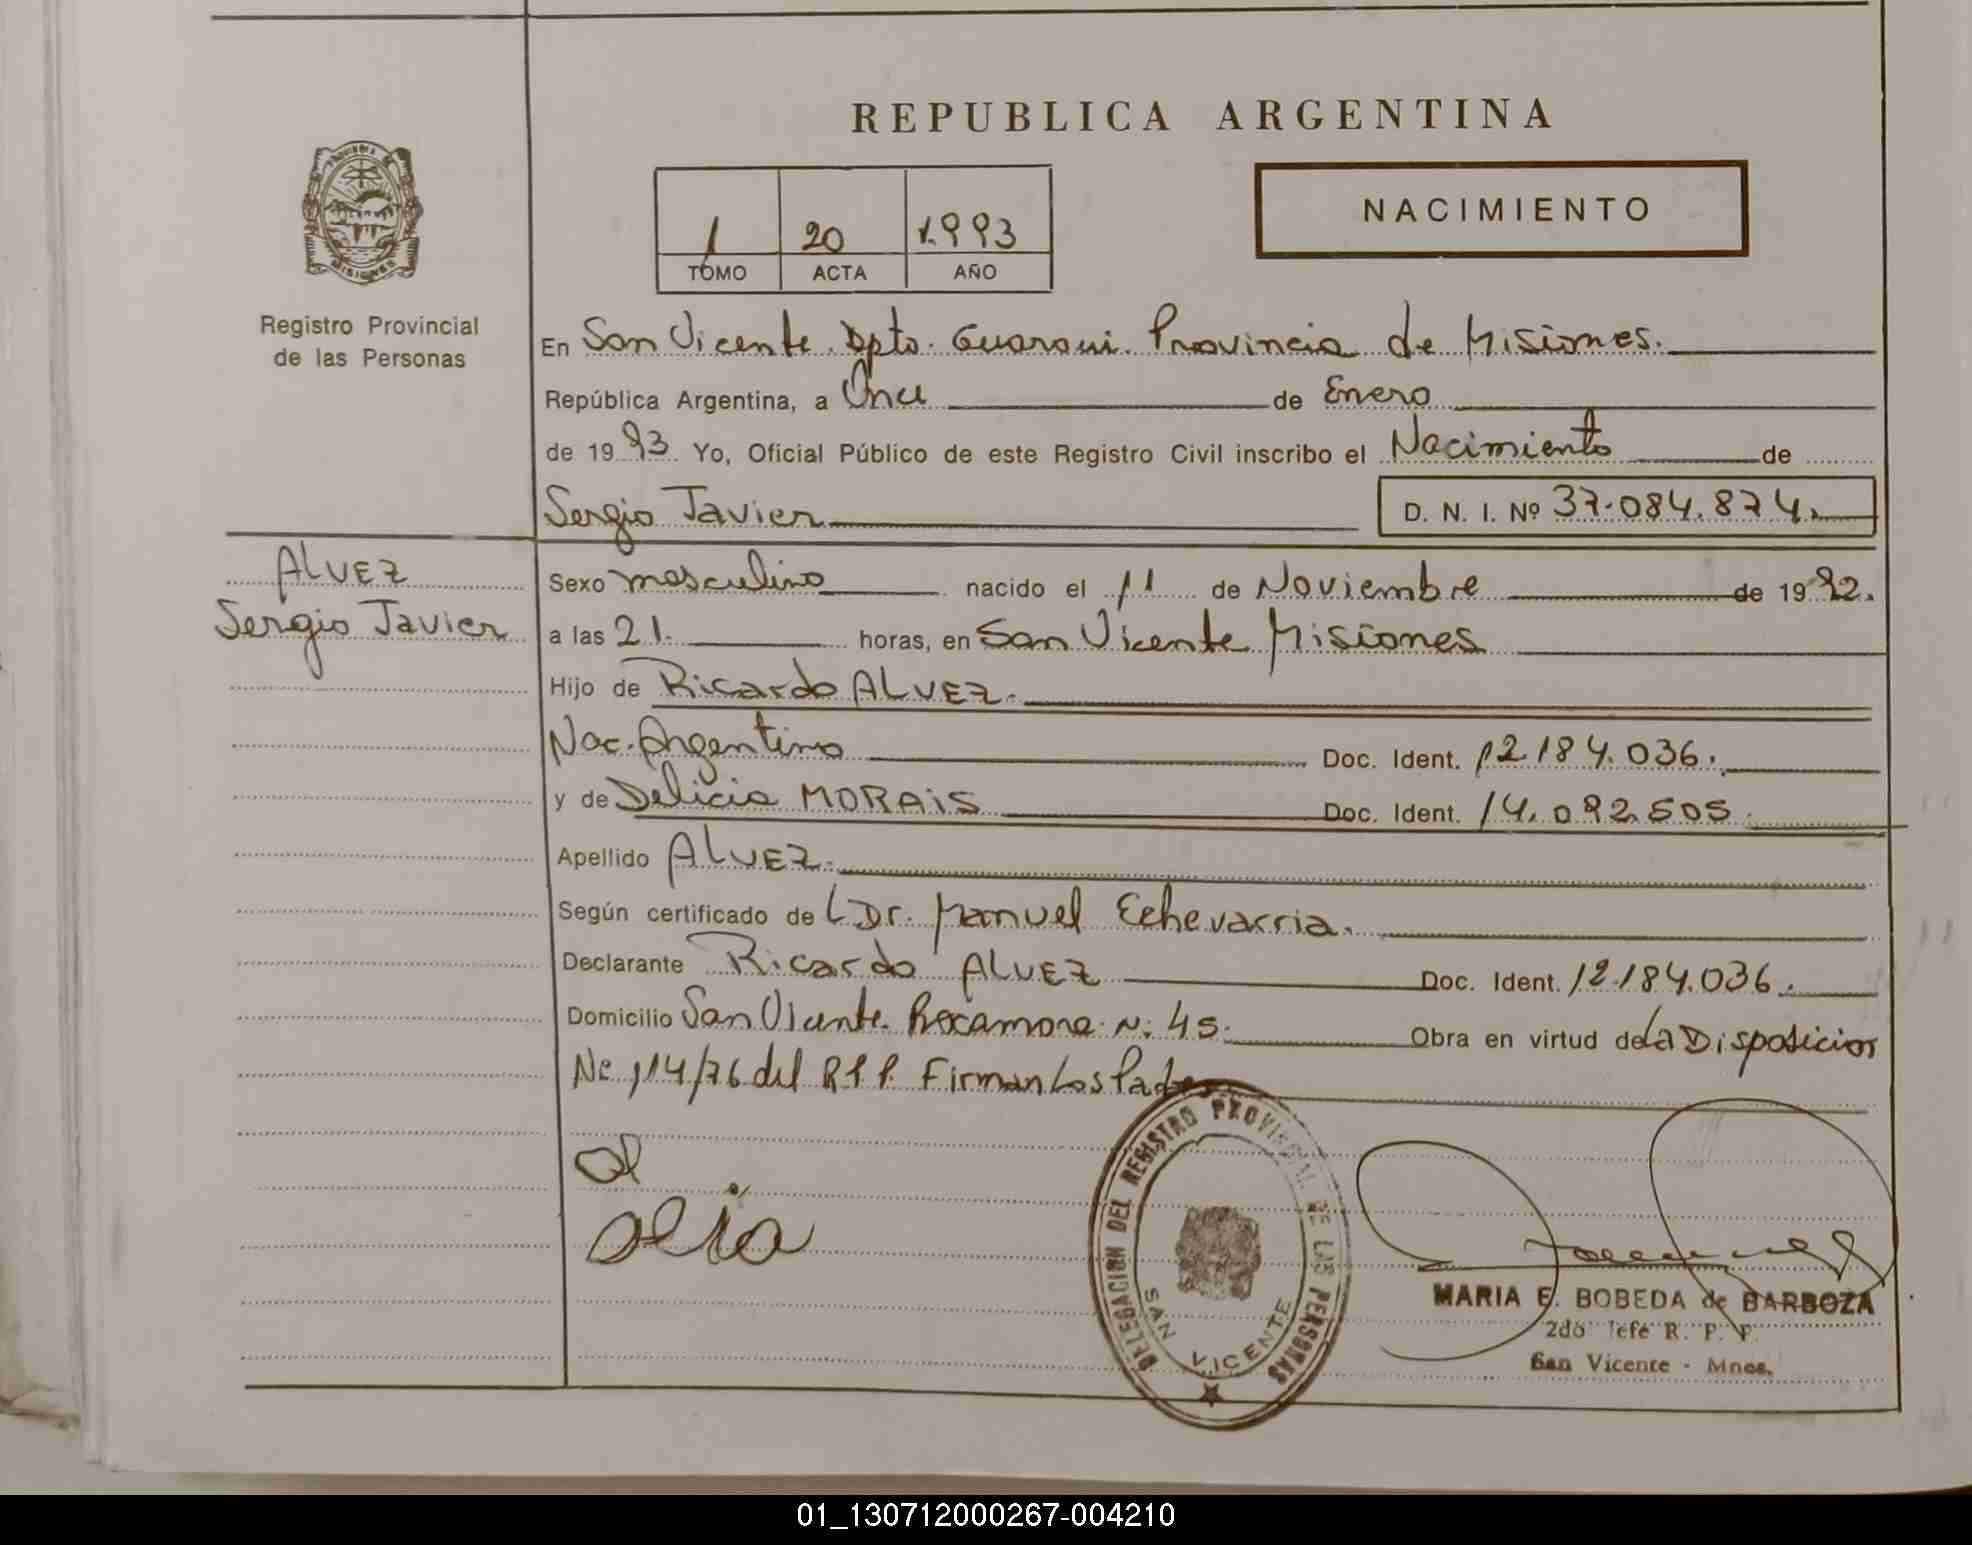 REPUBLICA ARGENTINA
NACIMIENTO
1 20 1.993
TOMO ACTA AÑO
PROVINCIA DE MISIONES
Registro Provincial
de las Personas
En San Vicente. Dpto. Guarani. Provincia de Misiones.
República Argentina, a Once de Enero
de 1993. Yo, Oficial Público de este Registro Civil inscribo el Nacimiento de
Sergio Javier D. N. I. Nº 37.084.874.
ALVEZ
Sergio Javier
Sexo masculino nacido el 11 de Noviembre de 1992.
a las 21. horas, en San Vicente Misiones
Hijo de Ricardo ALVEZ.
Nac. Argentino Doc. Ident. 12.184.036.
y de Delicia MORAIS Doc. Ident. 14.092.505
Apellido ALVEZ.
Según certificado de L Dr. Manuel Echevarria.
Declarante Ricardo ALVEZ Doc. Ident. 12.184.036.
Domicilio San Vicente. Rocamora. N: 45. Obra en virtud de La Disposicion
Nº 114/76 del R.P.P. Firman Los Padres
DELEGACION DEL REGISTRO PROVINCIAL DE LAS PERSONAS
SAN VICENTE
MARIA E. BOBEDA de BARBOZA
2do Jefe R. P. P.
San Vicente - Mnes.
01_130712000267-004210